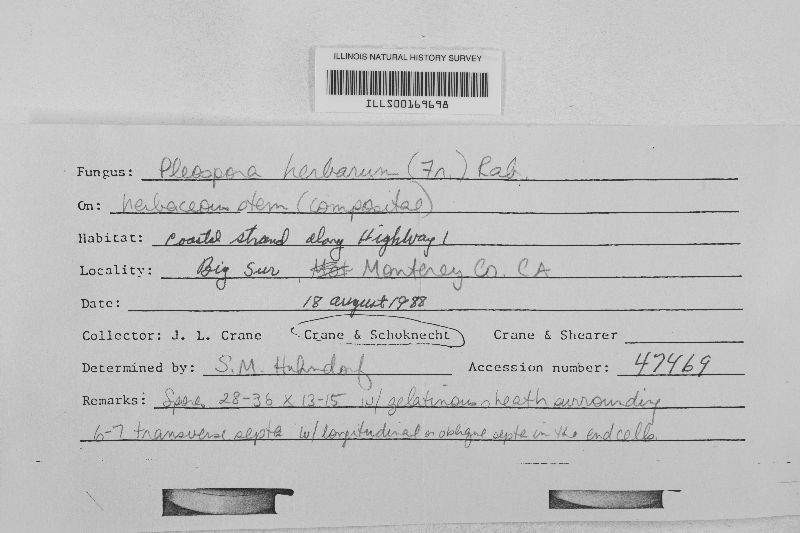 ILLINOIS NATURAL HISTORY SURVEY
ILLS00169698
Fungus: Pleospora herbarum (Fr.) Rab.
On: herbaceous stem (compositae)
Habitat: coastal strand along Highway 1
Locality: Big Sur Monterey Co. CA
Date: 18 august 1988
Collector: J. L. Crane Crane & Schoknecht Crane & Shearer
Determined by: S.M. Huhndorf Accession number: 47469
Remarks: Spores 28-36 x 13-15 w/ gelatinous sheath surrounding
6-7 transverse septa w/ longitudinal or oblique septa in the end cells.